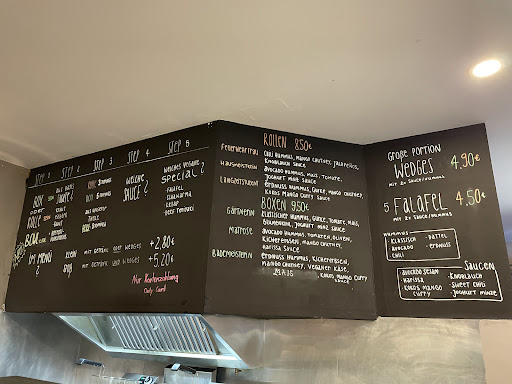 STEP 1
STEP 2
STEP 3
STEP 4
STEP 5
BOX
ROLLE
BOWL
HUMMUS
WELCHE
SAUCE?
WELCHES VEGANE
SPECIAL?
FALAFEL
SHAWARMA
KEBAP
IM MENÜ?
KLEIN
MIT GETRÄNK ODER WEDGES +2,80€
MIT GETRÄNK UND WEDGES +5,20€
Nur Kartenzahlung
Only Card
ROLLEN 8,50€
FEUERWEHRFRAU CHILI HUMMUS, MANGO CHUTNEY, JALAPEÑOS,
KNOBLAUCH SAUCE
HAUSMEISTERIN AVOCADO HUMMUS, MAIS, TOMATE,
JOGHURT MINT SAUCE
LANGZEITSTUDENT ERDNUSS HUMMUS, GURKE, MANGO CHUTNEY,
KOKOS MANGO CURRY SAUCE
BOXEN 9,50€
GÄRTNERIN KLASSISCHER HUMMUS, GURKE, TOMATE, MAIS,
BLUMENKOHL, JOGHURT MINT SAUCE
MATROSE AVOCADO HUMMUS, TOMATEN, OLIVEN,
KICHERERBSEN, MANGO CHUTNEY
HARISSA SAUCE
BADEMEISTERIN ERDNUSS HUMMUS, KICHERERBSEN,
MANGO CHUTNEY, VEGANER KÄSE,
KOKOS MANGO CURRY
SAUCE
GROßE PORTION
WEDGES 4,90€
MIT 2x SAUCE/HUMMUS
5 FALAFEL 4,50€
MIT 2x SAUCE/HUMMUS
HUMMUS
- KLASSISCH - DATTEL
- AVOCADO - ERDNUSS
- CHILI
SAUCEN
- AVOCADO SESAM - KNOBLAUCH
- HARISSA - SWEET CHILI
- KOKOS MANGO - JOGHURT MINZE
CURRY